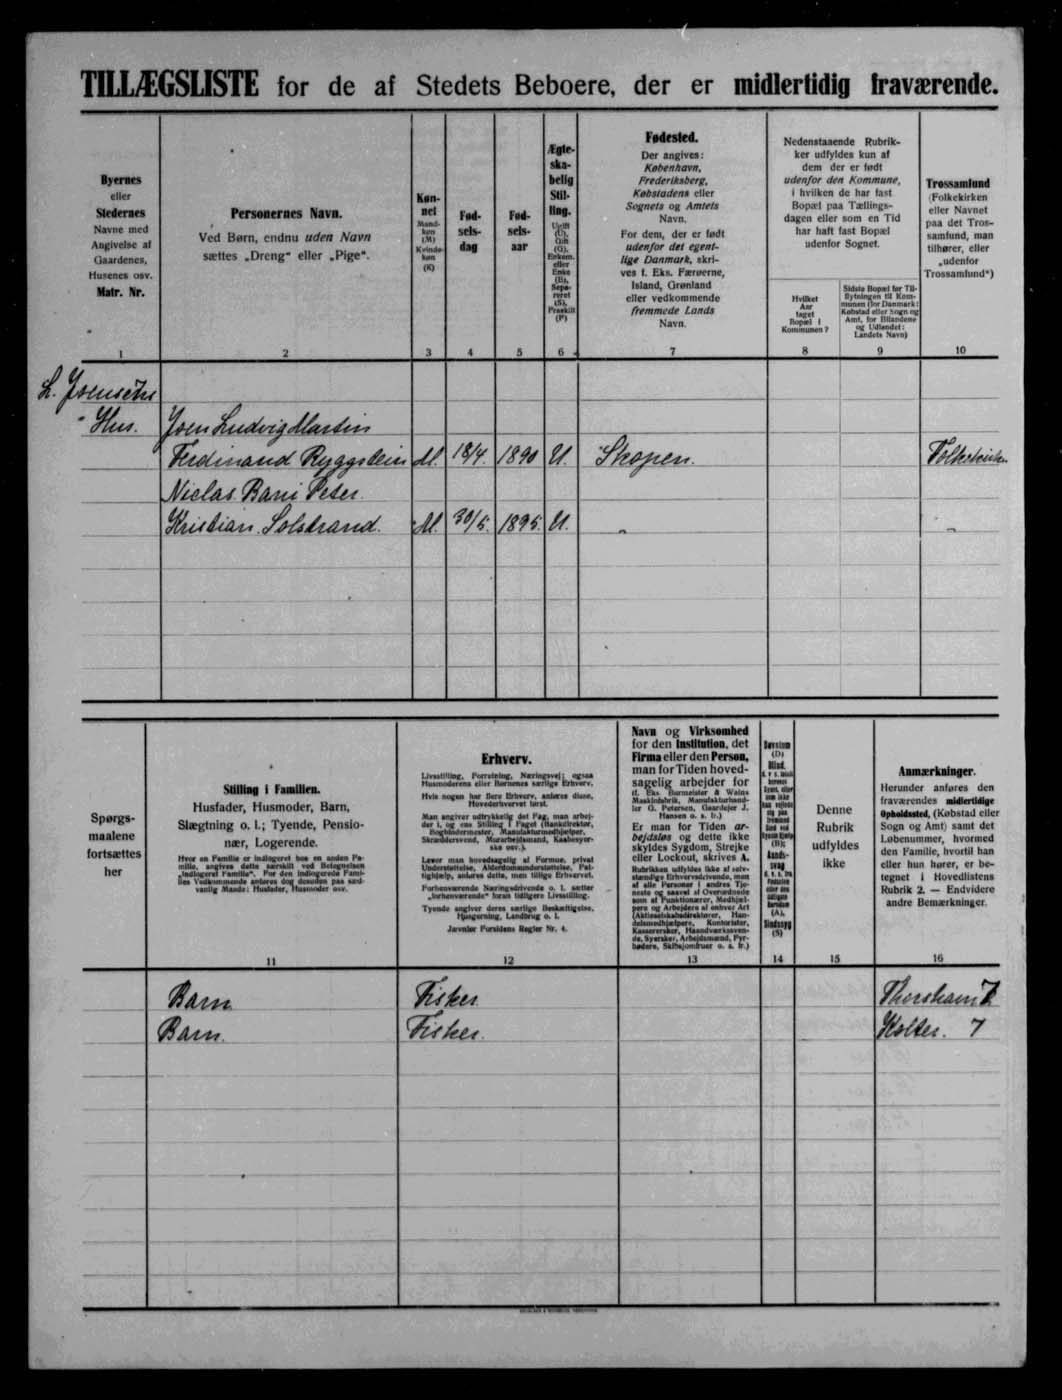 TILLÆGSLISTE for de af Stedets Beboere, der er midlertidig fraværende.
Byernes
eller
Stedernes
Navne med
Angivelse af
Gaardenes,
Husenes osv.
Matr. Nr.
1
Personernes Navn.
Ved Børn, endnu uden Navn
sættes „Dreng“ eller „Pige“.
2
Køn-
net
Mand-
køn
(M)
Kvinde-
køn
(K)
3
Fød-
sels-
dag
4
Fød-
sels-
aar
5
Ægte-
ska-
belig
Stil-
ling.
Ugift
(U),
Gift
(G),
Enkem.
eller
Enke
(E),
Sepa-
reret
(S),
Fraskilt
(F)
6
Fødested.
Der angives:
København,
Frederiksberg,
Købstadens eller
Sognets og Amtets
Navn.
For dem, der er født
udenfor det egent-
lige Danmark, skri-
ves f. Eks. Færøerne,
Island, Grønland
eller vedkommende
fremmede Lands
Navn.
7
Nedenstaaende Rubrik-
ker udfyldes kun af
dem der er født
udenfor den Kommune,
i hvilken de har fast
Bopæl paa Tællings-
dagen eller som en Tid
har haft fast Bopæl
udenfor Sognet.
Hvilket
Aar
taget
Bopæl i
Kommunen?
8
Sidste Bopæl før Til-
flytningen til Kom-
munen (for Danmark:
Købstad eller Sogn og
Amt, for Bilandene
og Udlandet:
Landets Navn)
9
Trossamfund
(Folkekirken
eller Navnet
paa det Tros-
samfund, man
tilhører, eller
„udenfor
Trossamfund“)
10
Hus.
Joen Ludvig Martin
Ferdinand Ryggstein M. 18/4. 1890 U. Skopen.
Niclas Bani Peter
Kristian Solstrand. M. 30/5. 1895. U. „ „
Spørgs-
maalene
fortsættes
her
Stilling i Familien.
Husfader, Husmoder, Barn,
Slægtning o. l.; Tyende, Pensio-
nær, Logerende.
Hvor en Familie er indlogeret hos en anden Fa-
milie, angives dette særskilt ved Betegnelsen
„indlogeret Familie“. For den indlogerede Fami-
lies Vedkommende anføres dog desuden paa sæd-
vanlig Maade: Husfader, Husmoder osv.
11
Erhverv.
Livsstilling, Forretning, Næringsvej; ogsaa
Husmoderens eller Børnenes særlige Erhverv.
Hvis nogen har flere Erhverv, anføres disse,
Hovederhvervet først.
Man angiver udtrykkelig det Fag, man arbej-
der i, og ens Stilling i Faget (Bankdirektør,
Bogbindermester, Manufakturmedhjælper,
Skræddersvend, Murarbejdsmand, Kaabesyer-
ske osv.).
Lever man hovedsagelig af Formue, privat
Understøttelse, Alderdomsunderstøttelse, Fat-
tighjælp, anføres dette, men tillige Erhvervet.
Forhenværende Næringsdrivende o. l. sætter
„forhenværende“ foran tidligere Livsstilling.
Tyende angiver deres særlige Beskæftigelse,
Husgerning, Landbrug o. l.
Jævnfør Forsidens Regler Nr. 4.
12
Navn og Virksomhed
for den Institution, det
Firma eller den Person,
man for Tiden hoved-
sagelig arbejder for
(f. Eks. Burmeister & Wains
Maskinfabrik, Manufakturhand-
ler G. Petersen, Gaardejer J.
Hansen o. s. fr.)
Er man for Tiden ar-
bejdsløs og dette ikke
skyldes Sygdom, Strejke
eller Lockout, skrives A.
Rubrikken udfyldes ikke af selv-
stændige Erhvervsdrivende, men
af alle Personer i andres Tje-
neste og saavel af Overordnede
som af Funktionærer, Medhjæl-
pere og Arbejdere af enhver Art
(Aktieselskabsdirektører, Han-
delsmedhjælpere, Kontorister,
Kassererske, Haandværkssven-
de, Syersker, Arbejdsmænd, Fyr-
bødere, Skibsjomfruer o. s. fr.)
13
Døvstum
(D)
Blind,
(B);
Aands-
svag
(A),
Sindssyg
(S)
14
Denne
Rubrik
udfyldes
ikke
15
Anmærkninger.
Herunder anføres den
fraværendes midlertidige
Opholdssted, (Købstad eller
Sogn og Amt) samt det
Løbenummer, hvormed
den Familie, hvortil han
eller hun hører, er be-
tegnet i Hovedlistens
Rubrik 2. — Endvidere
andre Bemærkninger.
16
Barn Fisker. Thorshavn 7
Barn. Fisker. Kolter. 7